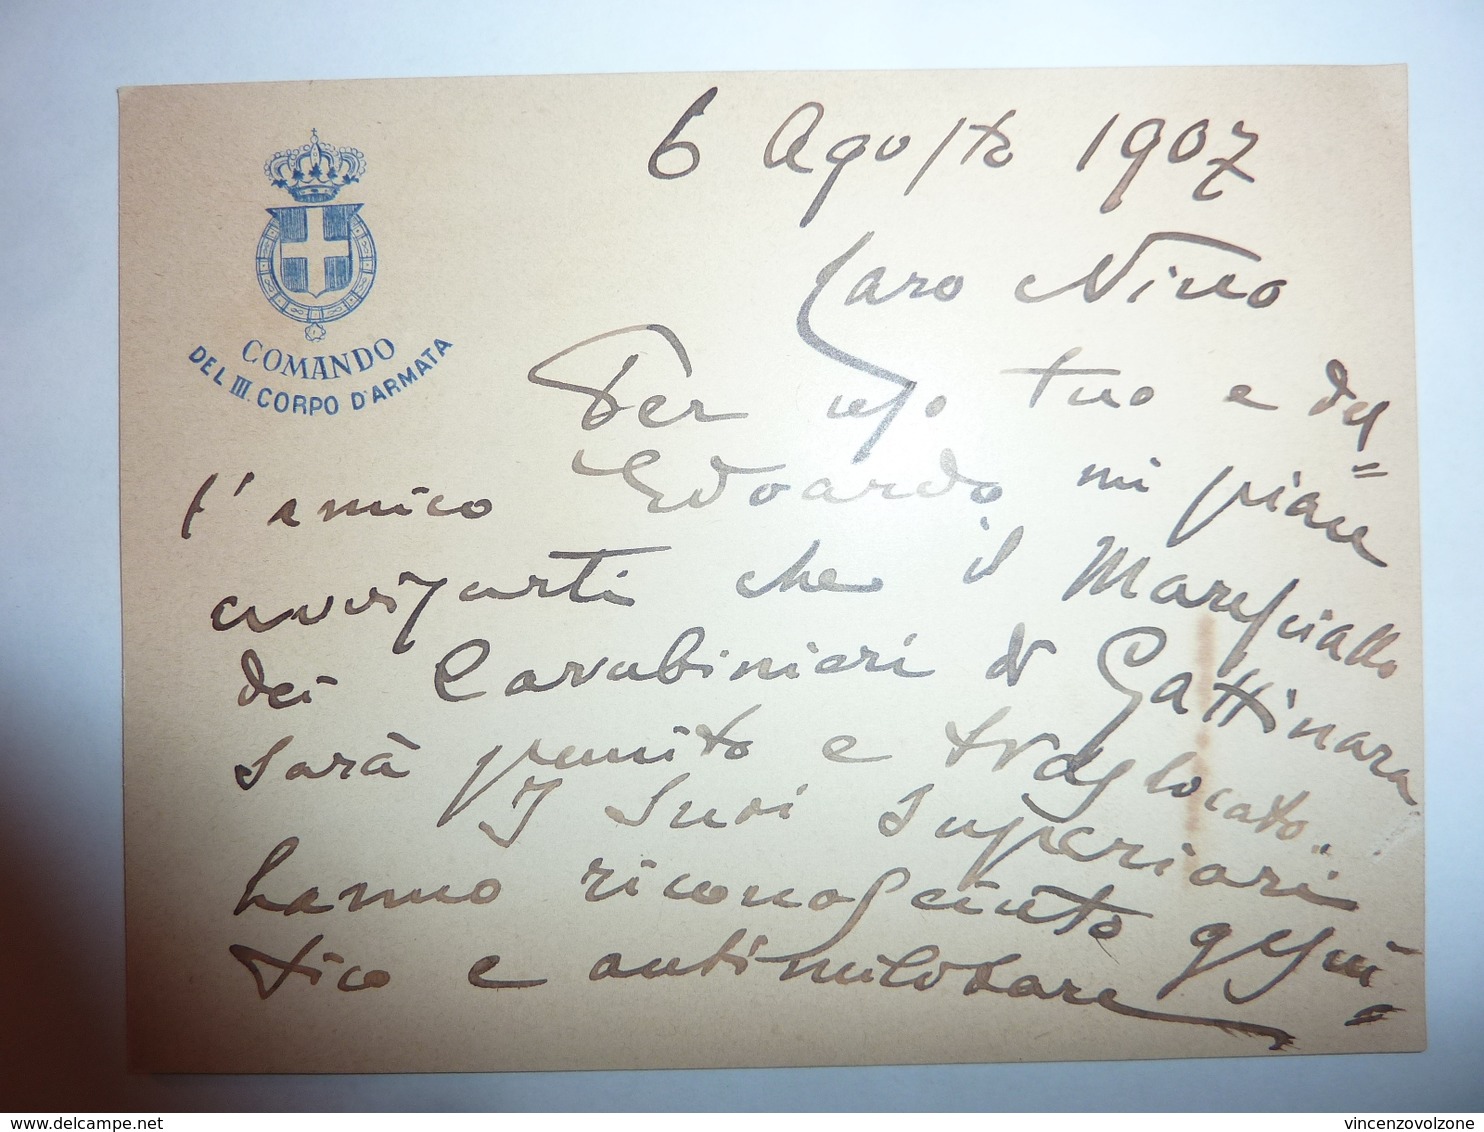 6 Agosto 1907
COMANDO
DEL III. CORPO D'ARMATA
Caro Nino
Per uso tuo e del=
l'amico Edoardo mi piace
avvisarti che il Maresciallo
dei Carabinieri di Gattinara
sarà punito e traslocato..
I suoi superiori
hanno riconosciuto gesui=
tico e antimilitare
delcampe.net
vincenzovolzone